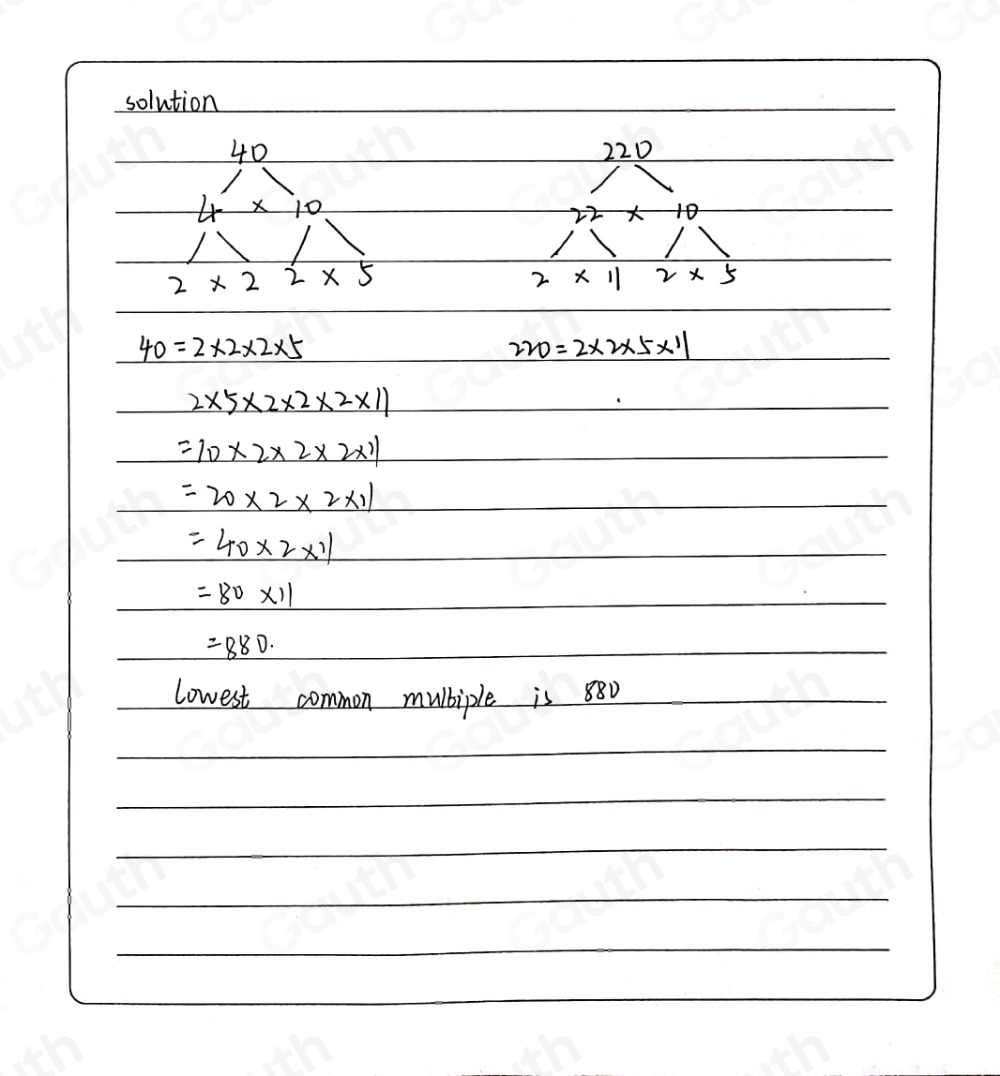 solution
40 220
4 × 10 22 × 10
2 × 2 2 × 5 2 × 11 2 × 5
40 = 2×2×2×5 220 = 2×2×5×11
2×5×2×2×2×11
=10×2×2×2×11
=20×2×2×11
=40×2×11
=80×11
=880.
Lowest common multiple is 880
Gauth